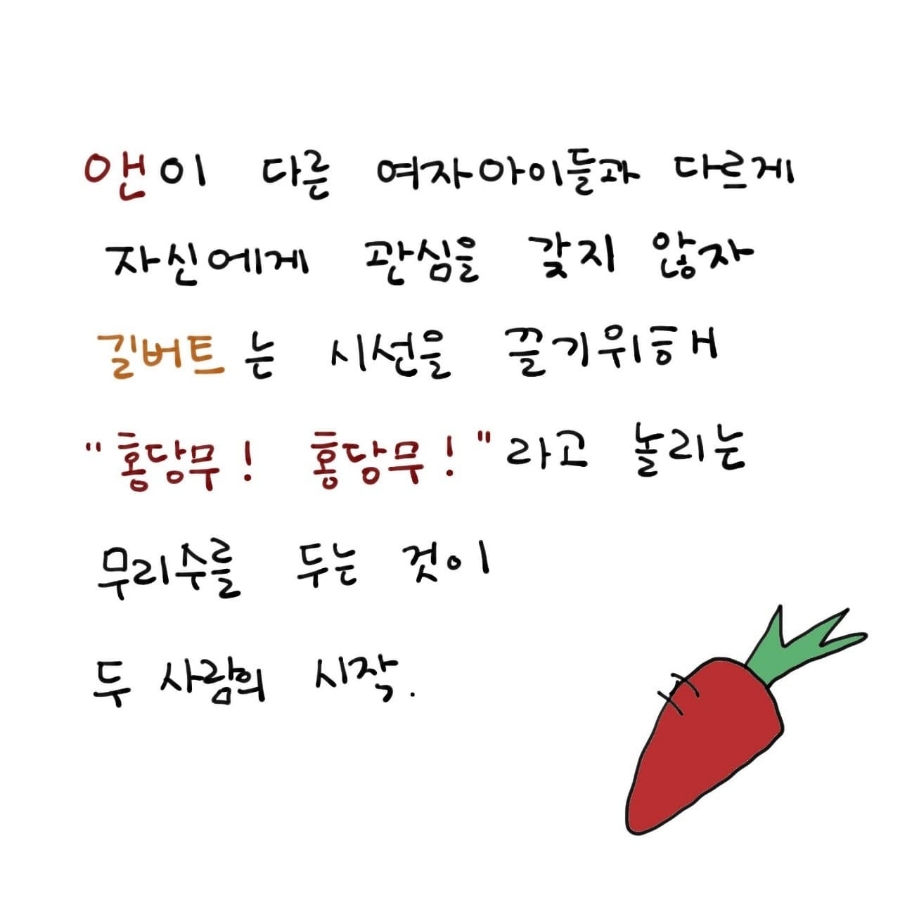 앤이 다른 여자아이들과 다르게
자신에게 관심을 갖지 않자
길버트는 시선을 끌기위해
"홍당무! 홍당무!"라고 놀리는
무리수를 두는 것이
두 사람의 시작.